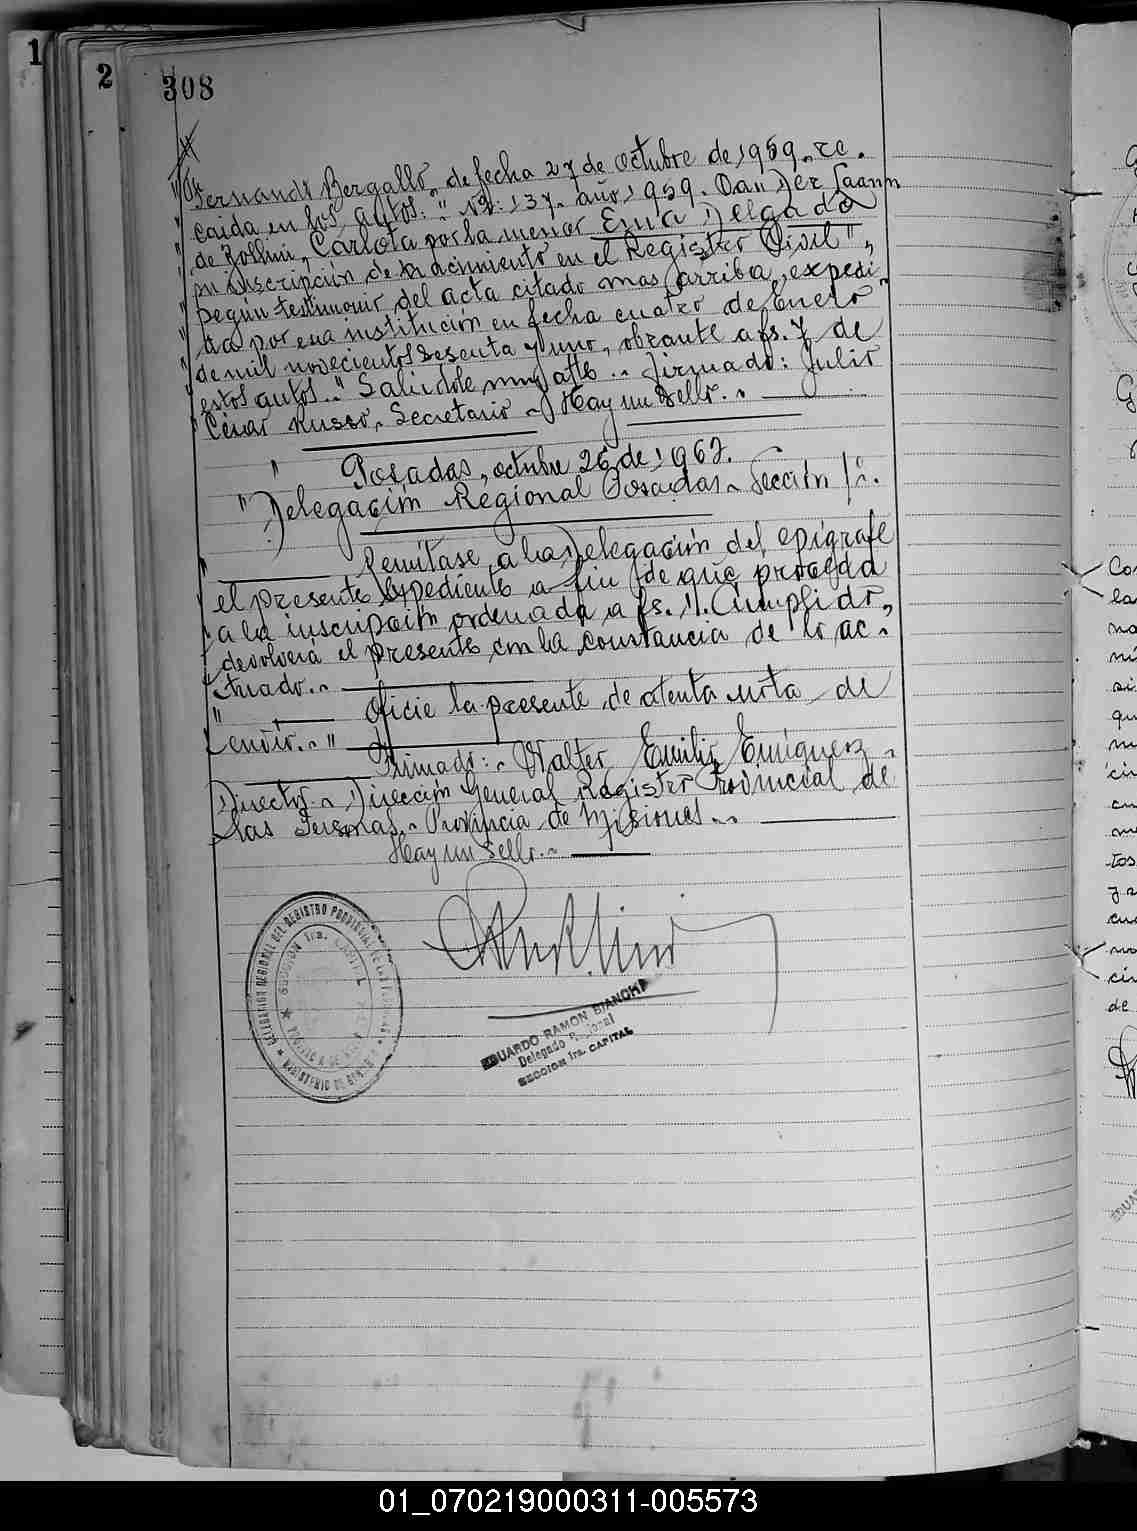 1
2
308
Fernando Bergalló, de fecha 27 de octubre de 1959, re-
caida en los autos: "Nº: 137- año 1959. Van Der Laann
de Zollini, Carlota por la menor Ema Delgado
su inscripción de nacimiento en el Registro Civil",
según testimonio del acta citado mas arriba, expedi-
da por esa institución en fecha cuatro de Enero
de mil novecientos sesenta y uno, obrante a fs. 7 de
estos autos.." Salúdole muy atte.. Firmado: Julio
César Russo, Secretario - Hay un Sello..
" Posadas, octubre 26 de 1967.
" Delegación Regional Posadas. Sección 1a.
Remítase a la Delegación del epígrafe
el presente expediente a fin de que proceda
a la inscripción ordenada a fs. 11. Cumplido,
devolverá el presente con la constancia de lo ac-
tuado..
" Oficie la presente de atenta nota de
envío.."
Firmado: Walter Emilio Enríquez
Director. Dirección General Registro Provincial de
las Personas. Provincia de Misiones..
Hay un Sello..
DELEGACION REGIONAL DEL REGISTRO PROVINCIAL DE LAS PERSONAS
SECCION 1ra. CAPITAL
MINISTERIO DE
EDUARDO RAMON BIANCHI
Delegado Regional
SECCION 1ra. CAPITAL
01_070219000311-005573